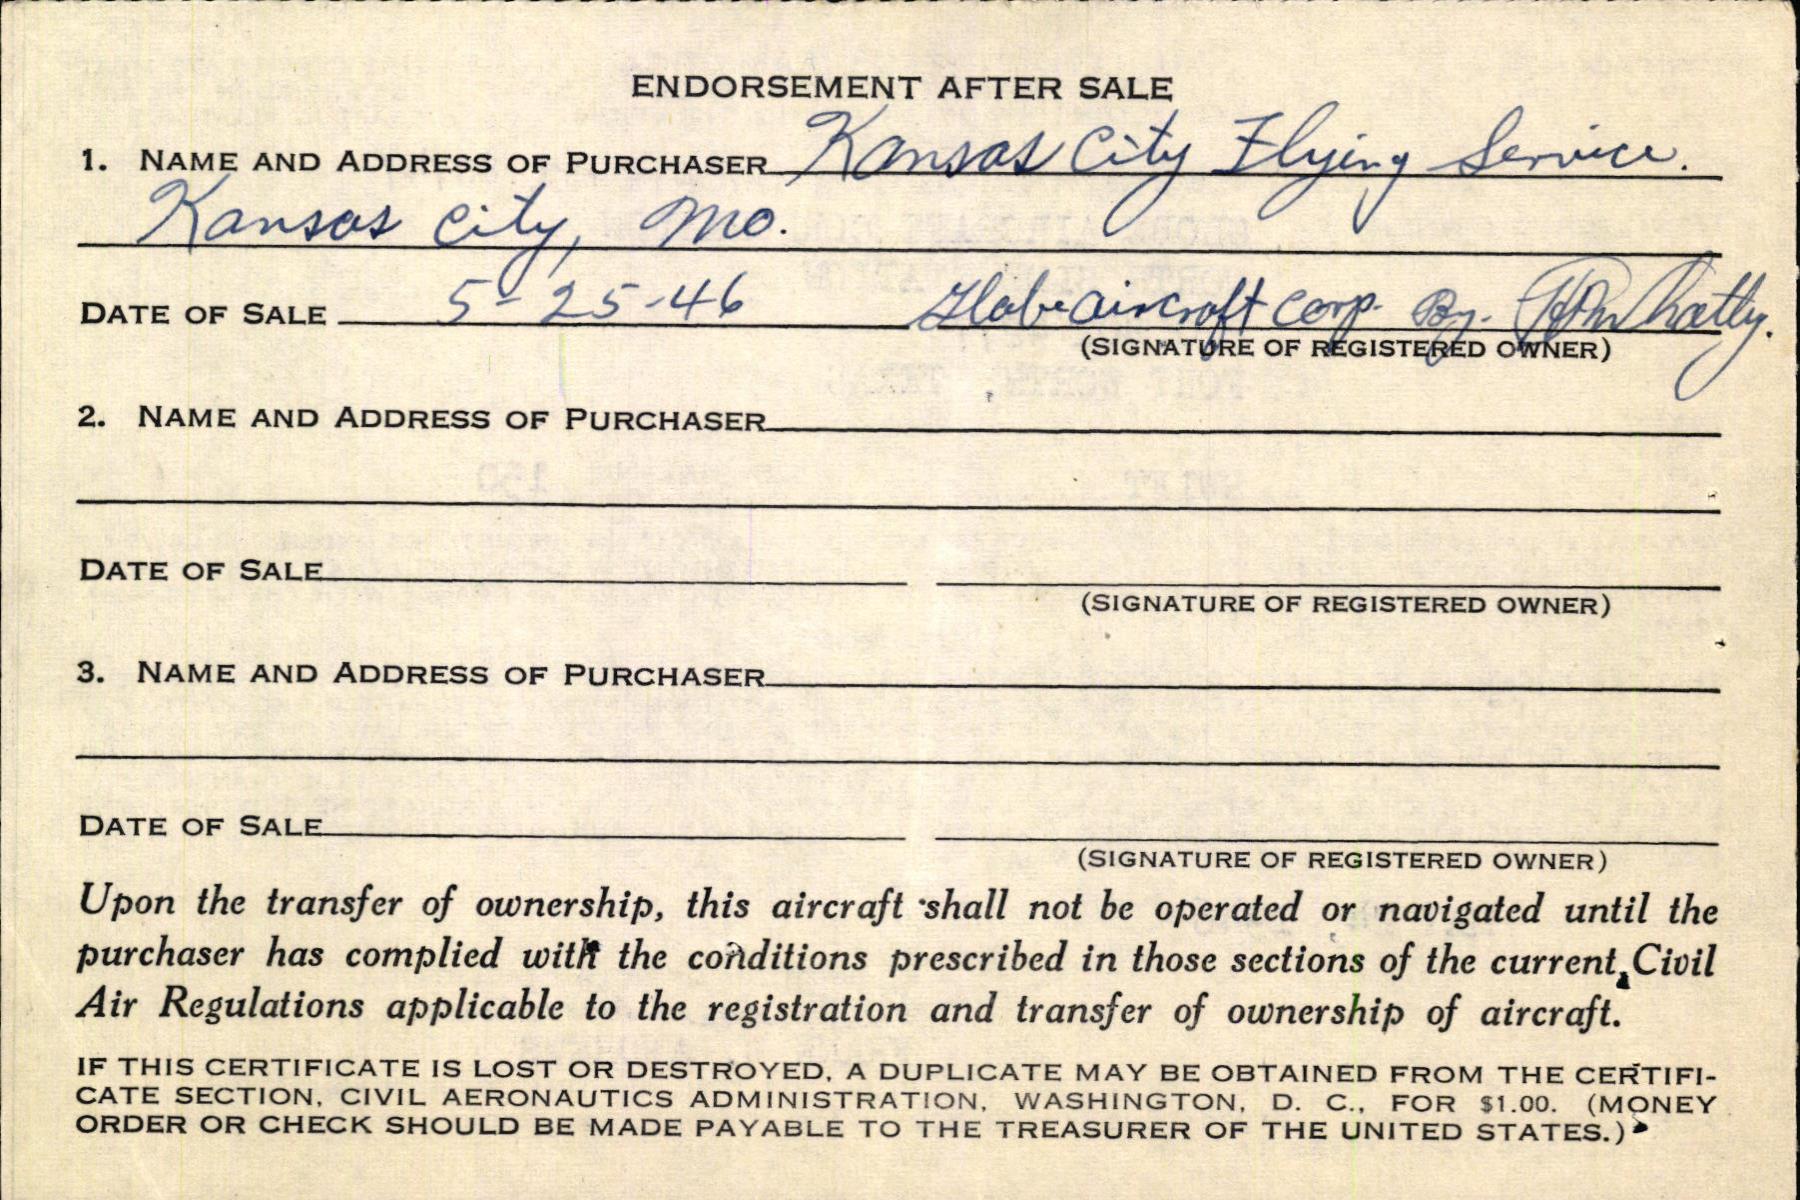 ENDORSEMENT AFTER SALE
1. NAME AND ADDRESS OF PURCHASER Kansas City Flying Service.
Kansas City, Mo.
DATE OF SALE 5-25-46 Globe Aircraft Corp. By.
(SIGNATURE OF REGISTERED OWNER)
2. NAME AND ADDRESS OF PURCHASER
DATE OF SALE
(SIGNATURE OF REGISTERED OWNER)
3. NAME AND ADDRESS OF PURCHASER
DATE OF SALE
(SIGNATURE OF REGISTERED OWNER)
Upon the transfer of ownership, this aircraft shall not be operated or navigated until the
purchaser has complied with the conditions prescribed in those sections of the current Civil
Air Regulations applicable to the registration and transfer of ownership of aircraft.
IF THIS CERTIFICATE IS LOST OR DESTROYED, A DUPLICATE MAY BE OBTAINED FROM THE CERTIFI-
CATE SECTION, CIVIL AERONAUTICS ADMINISTRATION, WASHINGTON, D. C., FOR $1.00. (MONEY
ORDER OR CHECK SHOULD BE MADE PAYABLE TO THE TREASURER OF THE UNITED STATES.)